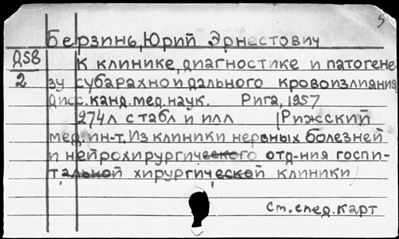 5
Берзинь, Юрий Эрнестович
Д58
2
К клинике, диагностике и патогене-
зу субарахноидального кровоизлияния
Дисс. канд. мед. наук. Рига, 1957
274л с табл и илл (Рижский
мед. ин-т. Из клиники нервных болезней
и нейрохирургического отд-ния госпи-
тальной хирургической клиники)
См. след. карт